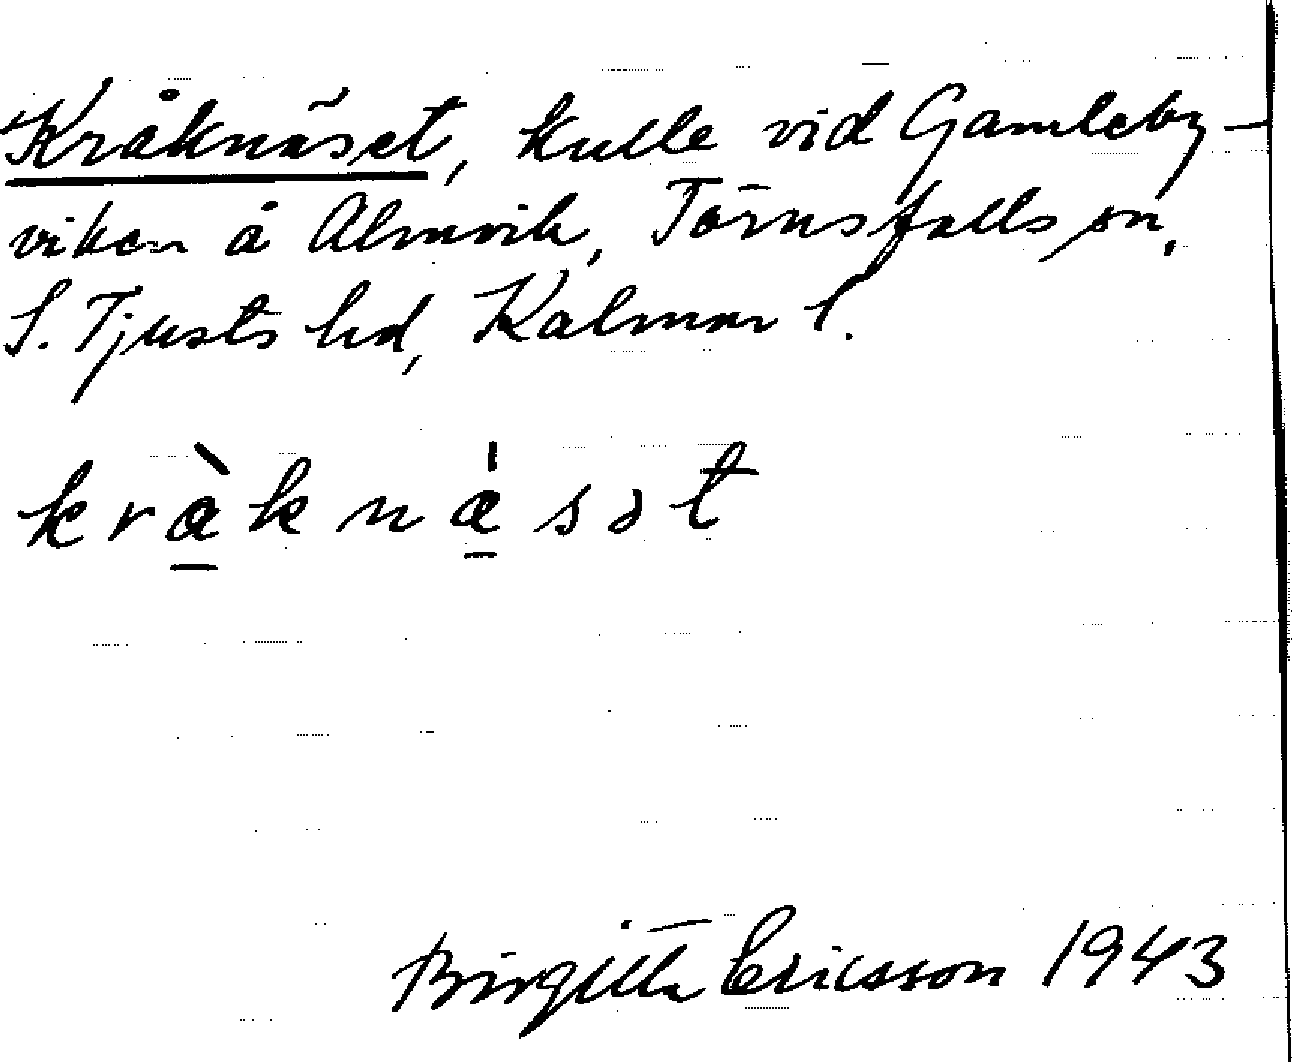 Kråknäset, kulle vid Gamleby-
viken å Almvik, Törnsfalls sn,
S. Tjusts hd, Kalmar l.
kràknæ̀sət
Birgitta Ericsson 1943